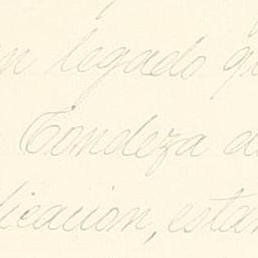 n legado q
Condeza d
licación, estan